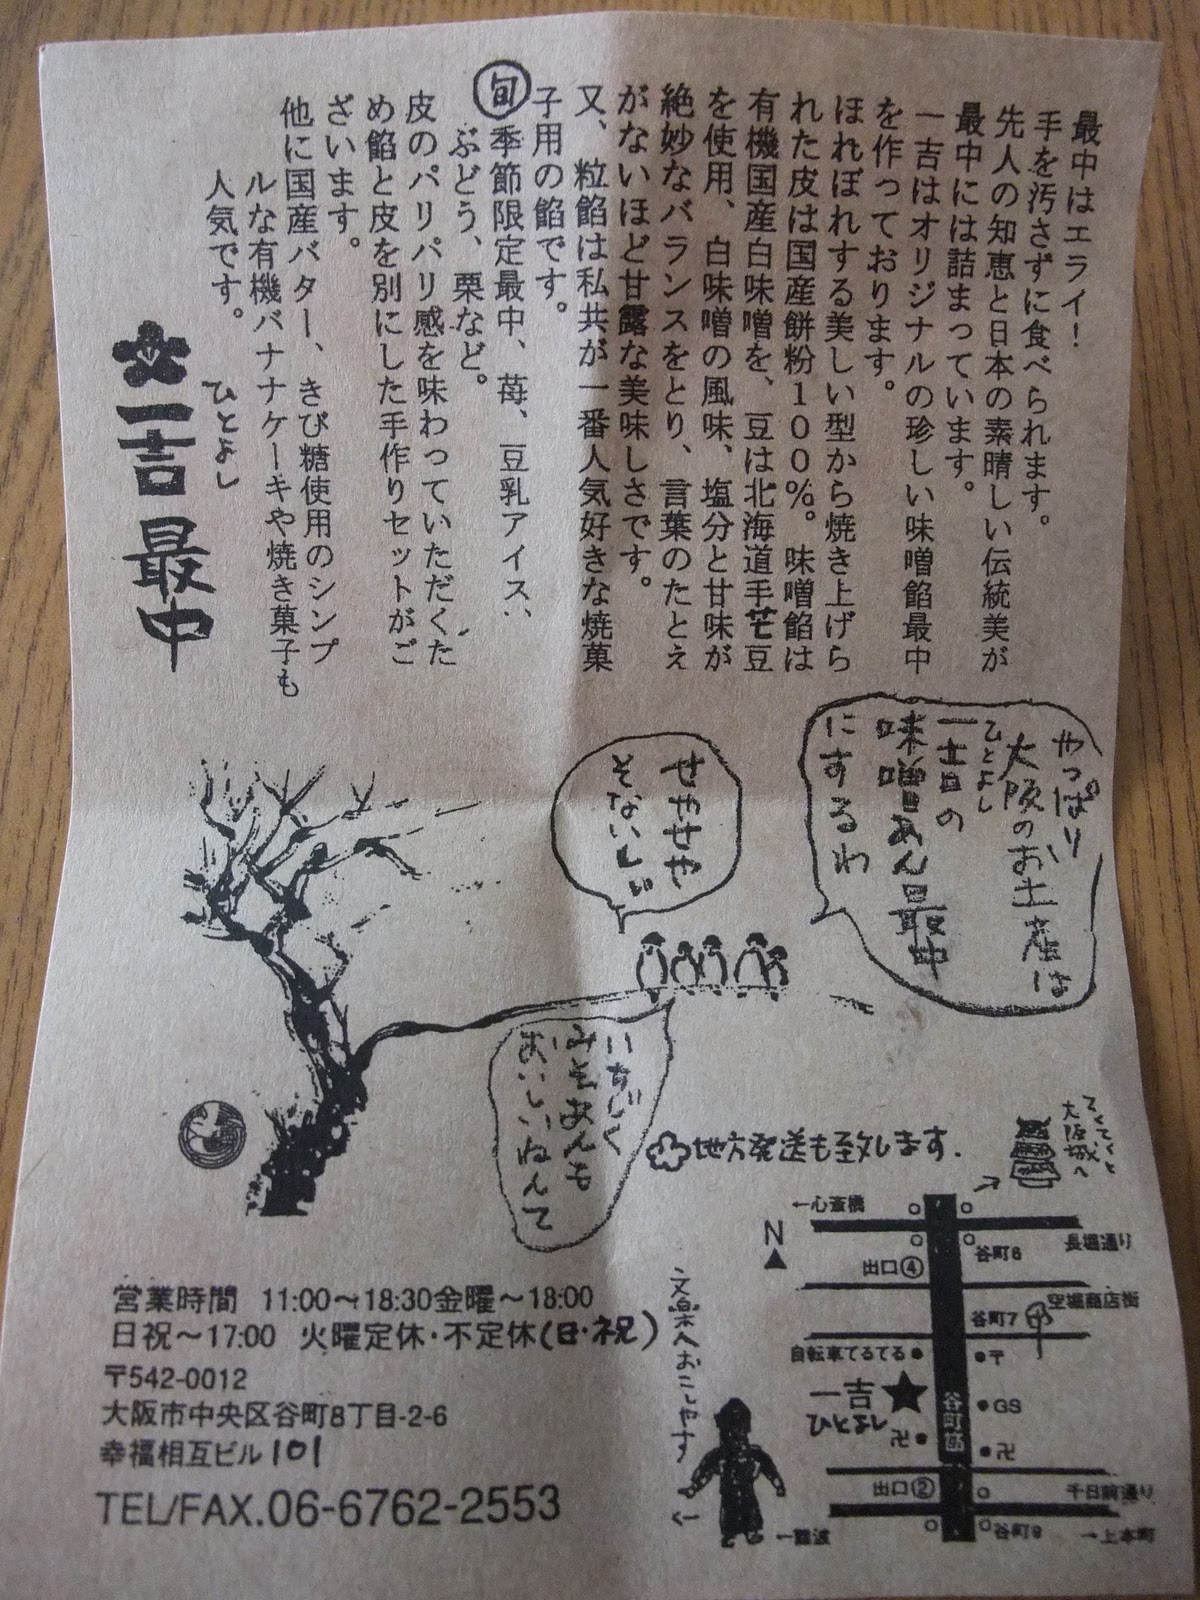 最中はエライ!
手を汚さずに食べられます。
先人の知恵と日本の素晴しい伝統美が
最中には詰まっています。
一吉はオリジナルの珍しい味噌餡最中
を作っております。
ほれぼれする美しい型から焼き上げら
れた皮は国産餅粉100%。味噌餡は
有機国産白味噌を、豆は北海道手芒豆
を使用、白味噌の風味、塩分と甘味が
絶妙なバランスをとり、言葉のたとえ
がないほど甘露な美味しさです。
又、粒餡は私共が一番人気好きな焼菓
子用の餡です。
旬 季節限定最中、苺、豆乳アイス、
ぶどう、栗など。
皮のパリパリ感を味わっていただくた
め餡と皮を別にした手作りセットがご
ざいます。
他に国産バター、きび糖使用のシンプ
ルな有機バナナケーキや焼き菓子も
人気です。
ひとよし
一吉 最中
やっぱり
大阪のお土産は
ひとよし
一吉の
味噌あん最中
にするわ
せやせや
そないしぃ
いちじく
みそあんも
おいしいねんて
地方発送も致します.
てくてくと
大阪城へ
←心斎橋
長堀通り
N
谷町6
出口④
空堀商店街
谷町7
自転車てるてる
〒
一吉
ひとよし
谷町筋
GS
卍
卍
出口②
千日前通り
谷町9
←難波
→上本町
文楽へおこしやす
営業時間 11:00〜18:30金曜〜18:00
日祝〜17:00 火曜定休・不定休(日・祝)
〒542-0012
大阪市中央区谷町8丁目-2-6
幸福相互ビル101
TEL/FAX.06-6762-2553